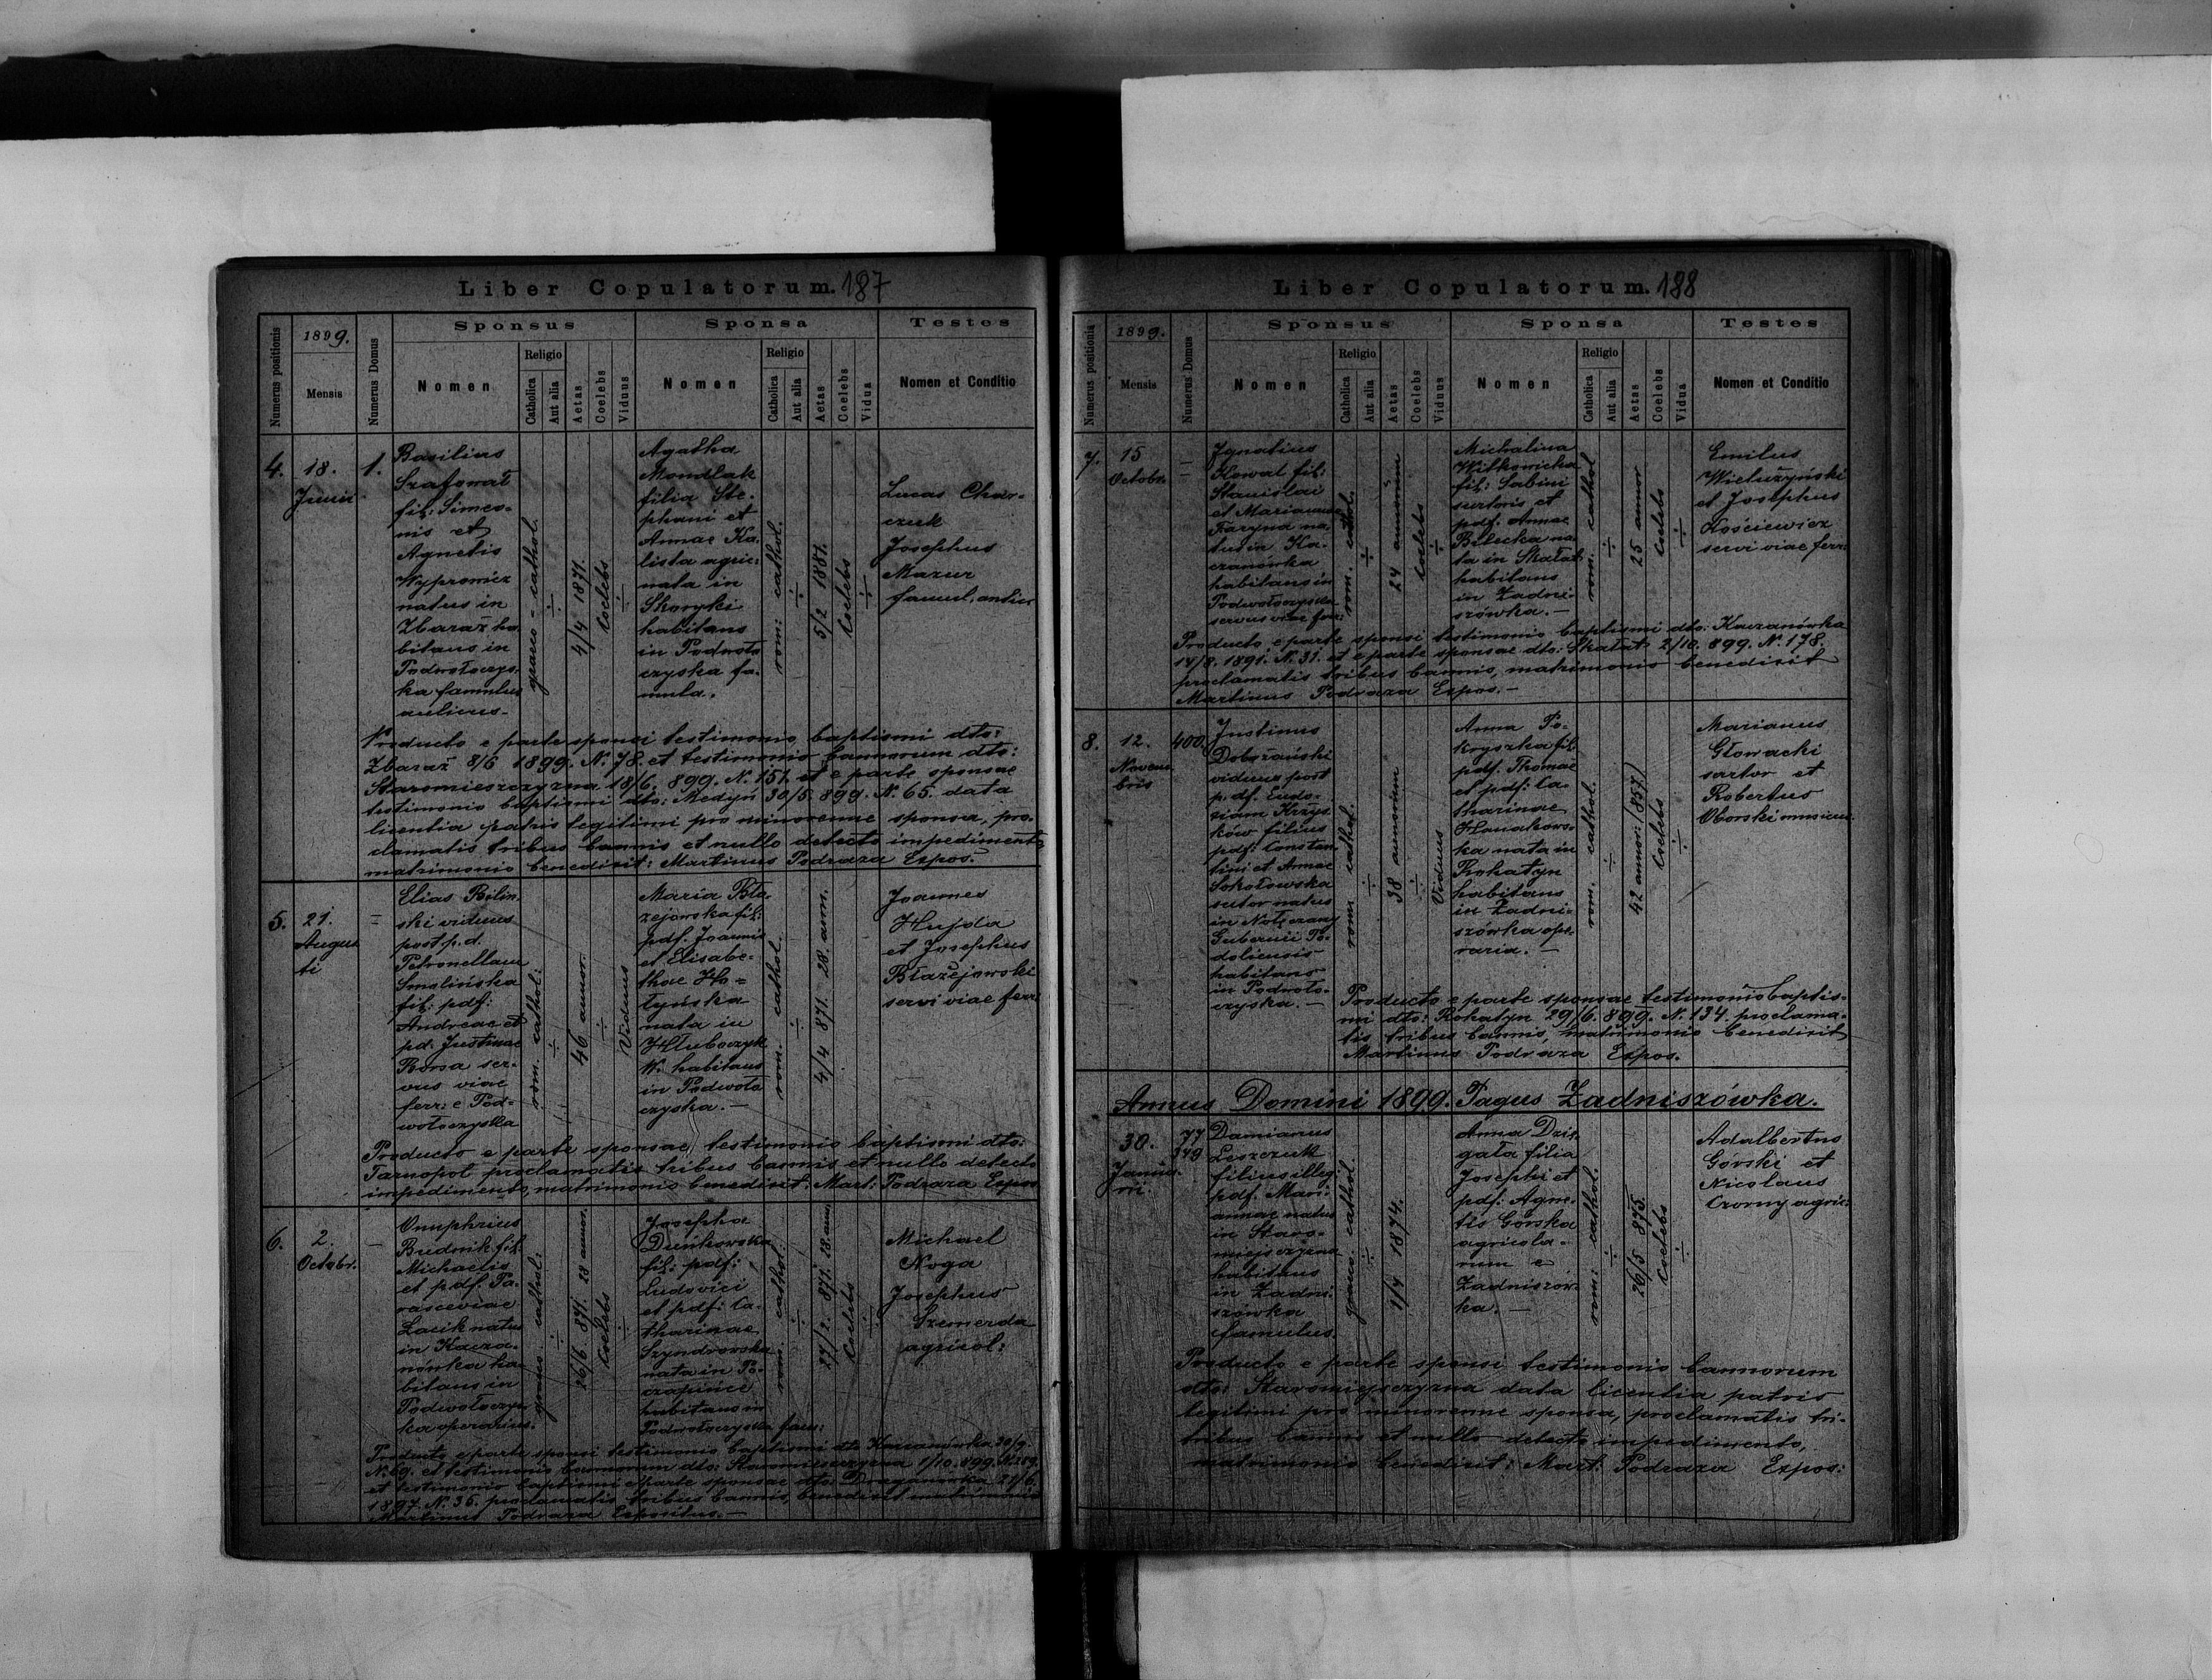 Liber Copulatorum. 187
Numerus positionis
1899.
Mensis
Numerus Domus
Sponsus
Nomen
Religio
Catholica
Aut alia
Aetas
Coelebs
Viduus
Sponsa
Nomen
Religio
Catholica
Aut alia
Aetas
Coelebs
Vidua
Testes
Nomen et Conditio
4.
18.
Junii
1.
Basilius
Szafowat
fil: Simeo-
nis et
Agnetis
Wyprowicz
natus in
Zbaraż ha
bitans in
Podwołoczys
ka famulus
aulicus-
graeco-cathol.
÷
4/4 1871.
Coelebs
÷
Agatha
Mondlak
filia Ste-
phani et
Annae Ka
lista agric:
nata in
Skoryki
habitans
in Podwoło
czyska fa-
mula.
rom: cathol.
÷
5/2 1881.
Coelebs
÷
Lucas Char-
czuk
Josephus
Mazur
famul. aulic
Producto e parte sponsi testimonio baptismi dto:
Zbaraż 8/6 1899. N. 78. et testimonio bannorum dto:
Staromieszczyzna 18/6. 899. N. 151. et e parte sponsae
testimonio baptismi dto: Medyń 30/5. 899. N. 65. data
licentia patris legitimi pro minorenne sponsa, pro-
clamatis tribus bannis et nullo detecto impedimento
matrimonio benedixit: Martinus Podraza Expos.
5.
21.
Augus
ti
=
Elias Bilin
ski viduus
post p.d.
Petronellam
Smolińska
fil: pdf:
Andreae et
pd. Justinae
Borsa ser-
vus viae
ferr: e Pod-
wołoczyska
rom. cathol:
÷
46 annor.
÷
Viduus
Maria Bła
zejowska fil:
pdf. Joannis
et Elisabe-
thae Ho=
tyńska
nata in
Hłuboczyk
W. habitans
in Podwoło
czyska.-
rom. cathol.
÷
4/4 871. 28. ann.
Joannes
Hujda
et Josephus
Błażejowski
servi viae ferr:
Producto e parte sponsae testimonio baptismi dto:
Tarnopol proclamatis tribus bannis et nullo detecto
impedimento, matrimonio benedixit: Mart: Podraza Expos
6.
2.
Octobr.
-
Onuphrius
Budnik fil:
Michaelis
et pdf. Pa-
rasceviae
Lacik natus
in Kacza-
nówka ha-
bitans in
Podwołoczys
ka operarius.
graeco. cathol:
÷
26/6 871. 28 annor.
Coelebs
÷
Josepha
Duńkowska
fil: pdf:
Ludovici
et pdf: Ca-
tharinae
Szyndrowska
nata in Po-
czapińce
habitans in
Podwołoczyska fam:
rom. cathol.
÷
27/2. 871. 28. ann.
Coelebs
÷
Michael
Noga
Josephus
Szemerda
agricol:
Producto e parte sponsi testimonio baptismi dto Kaczanówka 30/9.
N. 69. et testimonio bannorum dto: Staromieszczyzna 1/10. 899. N. 259.
et testimonio baptismi e parte sponsae dto: 27/6.
1897. N. 36. proclamatis tribus bannis, benedixit matrimonio
Martinus Podraza Expositus.-
Liber Copulatorum. 188
Numerus positionis
1899.
Mensis
Numerus Domus
Sponsus
Nomen
Religio
Catholica
Aut alia
Aetas
Coelebs
Viduus
Sponsa
Nomen
Religio
Catholica
Aut alia
Aetas
Coelebs
Vidua
Testes
Nomen et Conditio
7.
15
Octobr.
=
Ignatius
Kowal fil:
Stanislai
et Mariannae
Faryna na-
tus in Ka-
czanówka
habitans in
Podwołoczyska
servus viae ferr:
rom. cathol.
÷
24 annorum
Coelebs
÷
Michalina
Witkowicka
fil: Sabini
sutoris et
pdf. Annae
Bilecka na-
ta in Skałat
habitans
in Zadni-
szówka.-
rom. cathol
÷
25 annor
Coelebs
÷
Emilus
Wielużyński
et Josephus
Kościewicz
servi viae ferr:
Producto e parte sponsi testimonio baptismi dto: Kaczanówka
14/8. 1891. N. 31. et e parte sponsae dto: Skałat 2/10. 899. N. 178.
proclamatis tribus bannis, matrimonio benedixit
Martinus Podraza Expos.-
8.
12.
Novem
bris
400.
Justinus
Dobrżański
viduus post
p. df. Eudo-
xiam Krzys
ków filius
pdf: Constan
tini et Annae
Sokołowska
sutor natus
in Nołęczany
Gubernii Po-
doliensis
habitans
in Podwoło-
czyska.-
rom. cathol.
÷
38 annorum
÷
Viduus
Anna Po-
kryszka fil:
pdf. Thomae
et pdf: Ca-
tharinae
Hanakows-
ka nata in
Rohatyn
habitans
in Zadni-
szówka ope-
raria.-
rom. cathol.
÷
42 annor: (857.)
Coelebs
÷
Marianus
Głowacki
sartor et
Robertus
Oborski musicus
Producto e parte sponsae testimonio baptis-
mi dto: Rohatyn 29/6. 899. N. 134. proclama-
tis tribus bannis, matrimonio benedixit
Martinus Podraza Expos.
Annus Domini 1899. Pagus Zadniszówka.
30.
Janua-
rii.
77
149
Damianus
Leszczuk
filius illeg:
pdf. Mari-
annae natus
in Staro-
miejszczyzna
habitans
in Zadni-
szówka
famulus.
graeco. cathol.
÷
1/7 1874.
Anna Dzi-
gała filia
Josephi et
pdf: Agne-
tis Górska
agricola-
rum e
Zadniszów-
ka.-
rom: cathol.
÷
26/5 875.
Coelebs
÷
Adalbertus
Górski et
Nicolaus
Czorny agric:
Producto e parte sponsi testimonio bannorum
dto: Staromiejszczyzna data licentia patris
legitimi pro minorenne sponsa, proclamatis tri-
tribus bannis et nullo detecto impedimento,
matrimonio benedixit: Mart. Podraza Expos: